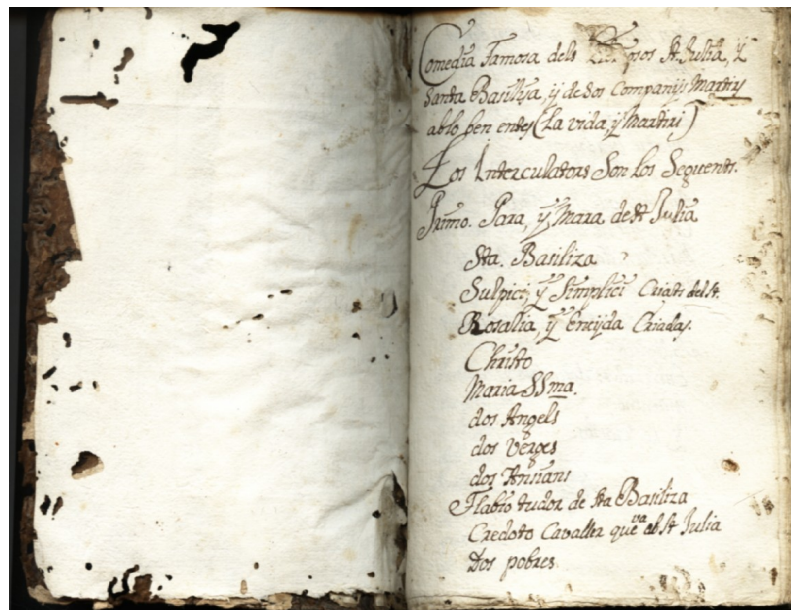 Comedia Famosa dels Glo sos St. Julià, y
Santa Basilisa, ÿ de Sos Companÿs Martirs
ablo ben entes (La vida, ÿ Martiri)
Los Interculators Son los Seguents.
Primo. Para, ÿ Mara de St Julià
Sta. Basiliza
Sulpici, ÿ Simplici Criats del St.
Rosalia, ÿ Eneÿda Criadas.
Christo
Maria SSma.
dos Angels
dos Verges
dos Ansians
Flabio tudor de Sta Basiliza
Credoto Cavaller que va ab St Julia
Dos pobres